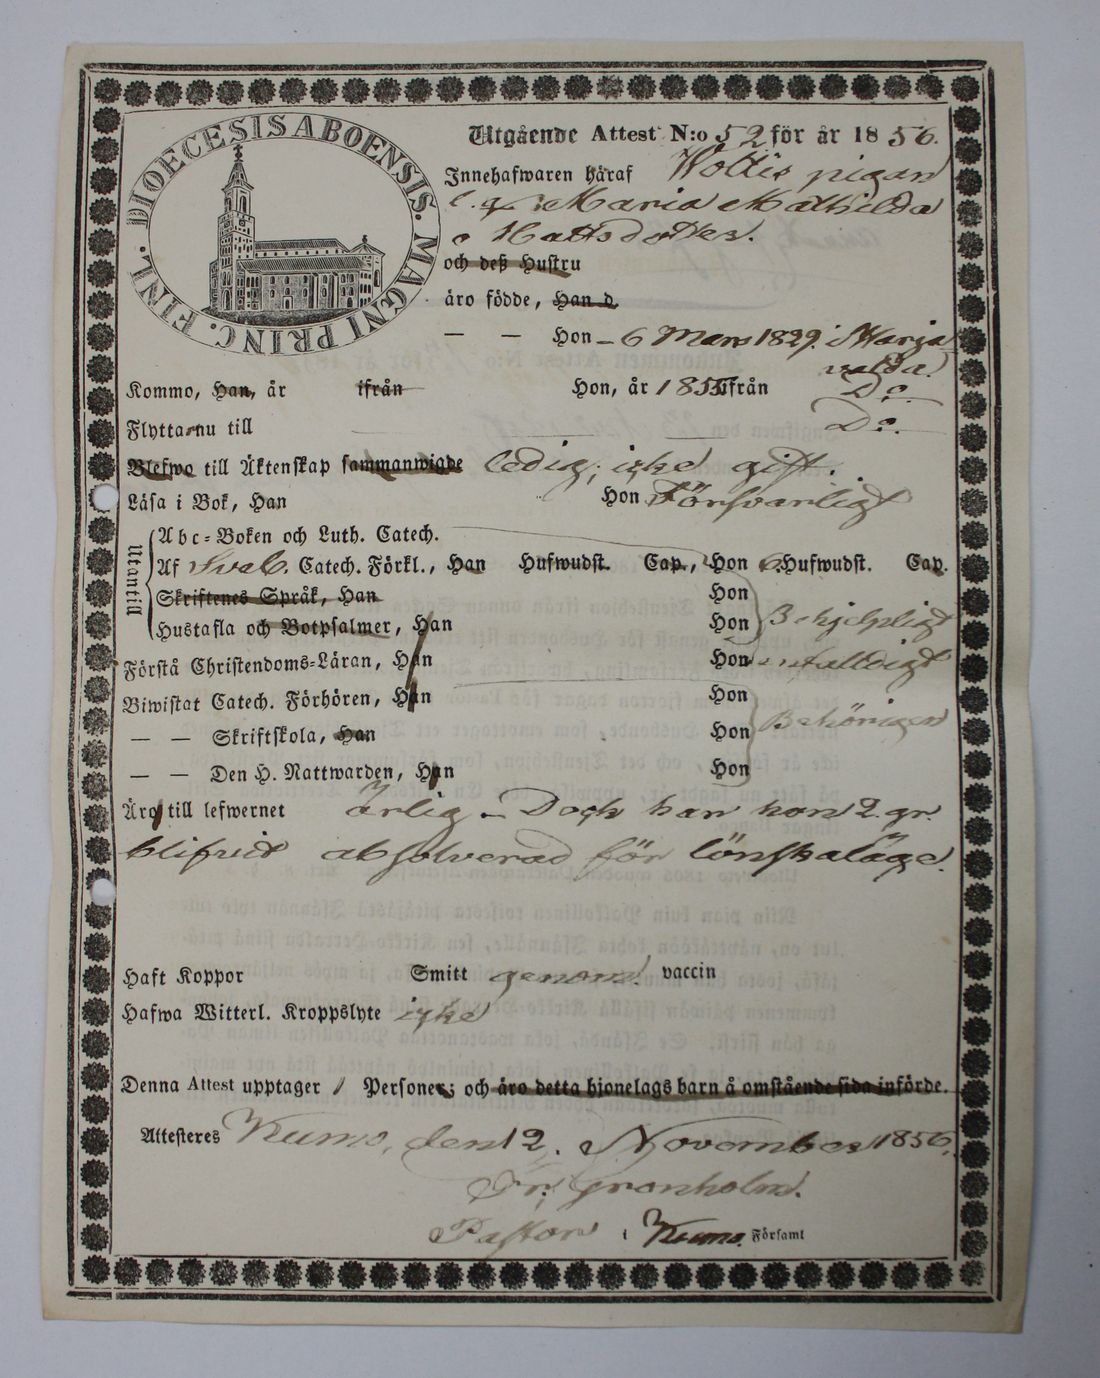 DIOECESIS ABOENSIS. MAGNI PRINC. FINL.
Utgående Attest N:o 52 för år 1856.
Innehafwaren håraf Woltis pigan
Maria Mathilda
Mattsdotter.
och deß Hustru
äro födde, Han d.
— — Hon – 6 Mars 1829. i Maria
Kommo, Han, år ifrån Hon, år 1855 ifrån Do.
Flytta nu till Do.
Blefwo till Äktenskap sammanwigde ledig, icke gift.
Läsa i Bok, Han Hon Försvarligt
Utantill
Abc-Boken och Luth. Catech.
Af Sveb. Catech. Förkl., Han Hufwudst. Cap., Hon 6 Hufwudst. Cap.
Skriftenes Språk, Han Hon
Hustafla och Botpsalmer, Han Hon Behjelpligt
Förstå Christendoms-Läran, Han Hon enfalldigt
Biwistat Catech. Förhören, Han Hon
— — Skriftskola, Han Hon Behörigen
— — Den H. Nattwarden, Han Hon
Äro till lefwernet ärlig – Dock har hon 2 gr.
blifvid absolverad för lönskaläge.
Haft Koppor Smitt genom vaccin
Hafwa Witterl. Kroppslyte icke
Denna Attest upptager 1 Personer; och äro detta hjonelags barn å omstående sida införde.
Attesteres Kumo, den 12. November 1856.
Fr: Gronholm.
Pastor i Kumo Församl